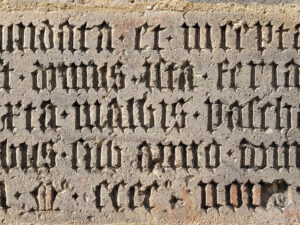 fundata · et · incepta
t · domus · ista · feria
xta · walbis · pasche
nus · sub · anno · dom
· m · cccc · non